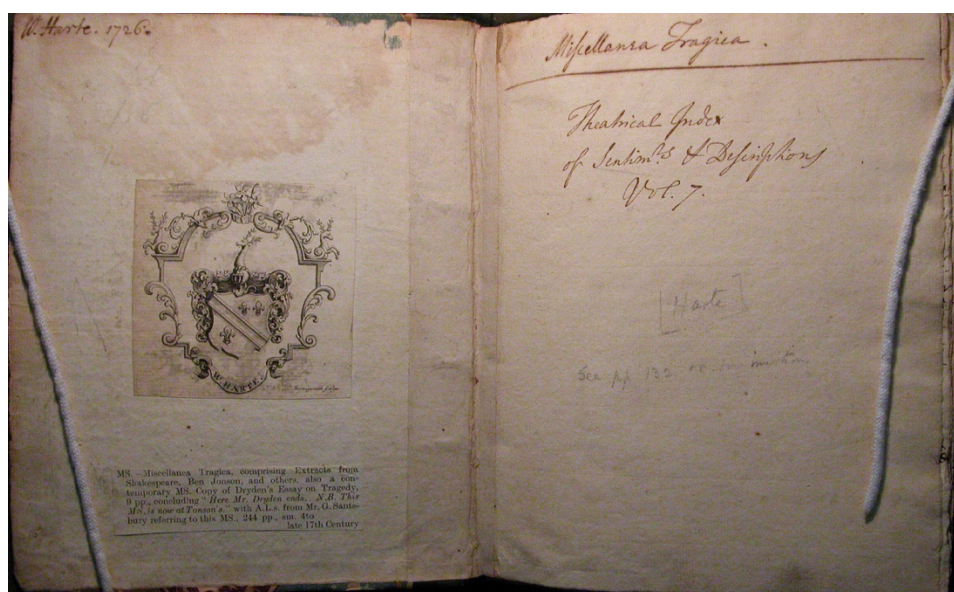 W. Harte. 1726.
W. HARTE.
MS.—Miscellanea Tragica, comprising Extracts from
Shakespeare, Ben Jonson, and others, also a con-
temporary MS. Copy of Dryden's Essay on Tragedy,
9 pp., concluding "Here Mr. Dryden ends. N.B. This
MS. is now at Tonson's." with A.L.s. from Mr. G. Sants-
bury referring to this MS., 244 pp., sm. 4to
late 17th Century
Miſcellanea Tragica.
Theatrical Index
of Sentim.ts & Deſcriptions
Vol. 7.
[Harte]
See pp 132